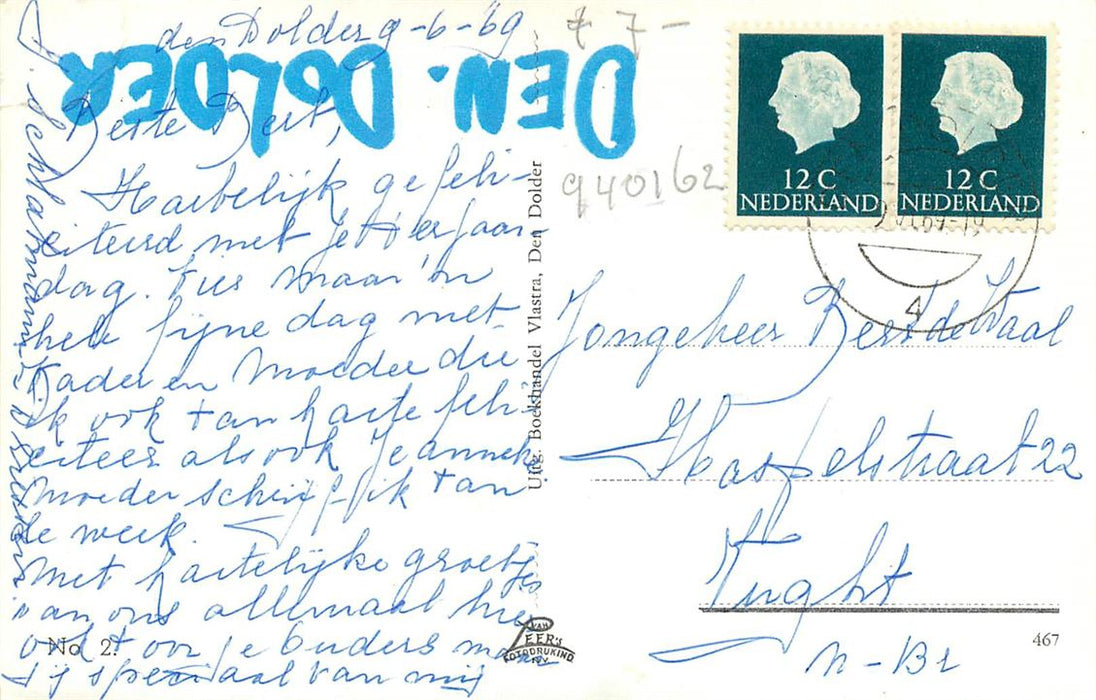 den Dolder 9-6-69
DEN. DOLDER
Beste Bert,
Hartelijk gefeli-
citeerd met je verjaar-
dag. Vier maar 'n
hele fijne dag met
Vader en Moeder die
ik ook van harte feli-
citeer als ook Janneke
Moeder schrijf ik van
de week.
Met hartelijke groetjes
van ons allemaal hier
ook voor je Ouders maar
jij speciaal van mij
Uitg. Boekhandel Vlastra, Den Dolder
77-
940162
12 C
NEDERLAND
12 C
NEDERLAND
4
Jongeheer Bert de Waal
Haspelstraat 22
Vught
N-Br
No 2.
VAN LEER'S
FOTODRUKIND
N.V.
467